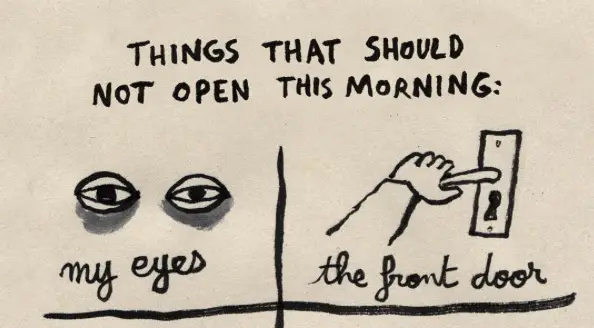 THINGS THAT SHOULD
NOT OPEN THIS MORNING:
my eyes
the front door